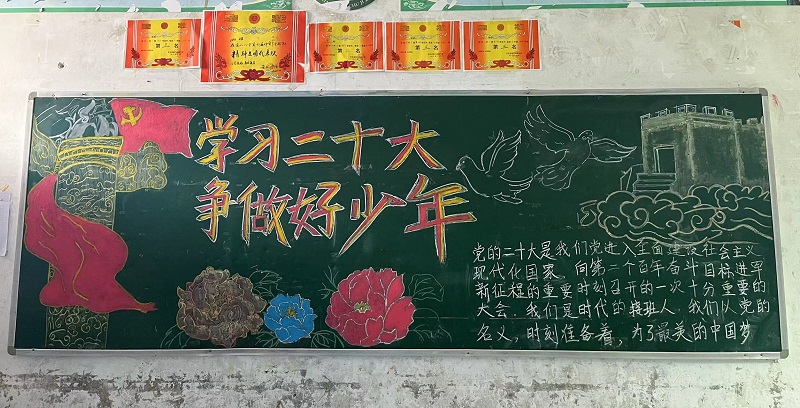 第二名
第一名
第一名
第一名
学习二十大
争做好少年
党的二十大是我们党进入全面建设社会主义
现代化国家、向第二个百年奋斗目标进军
新征程的重要时刻召开的一次十分重要的
大会。我们是时代的接班人,我们以党的
名义,时刻准备着,为了最美的中国梦